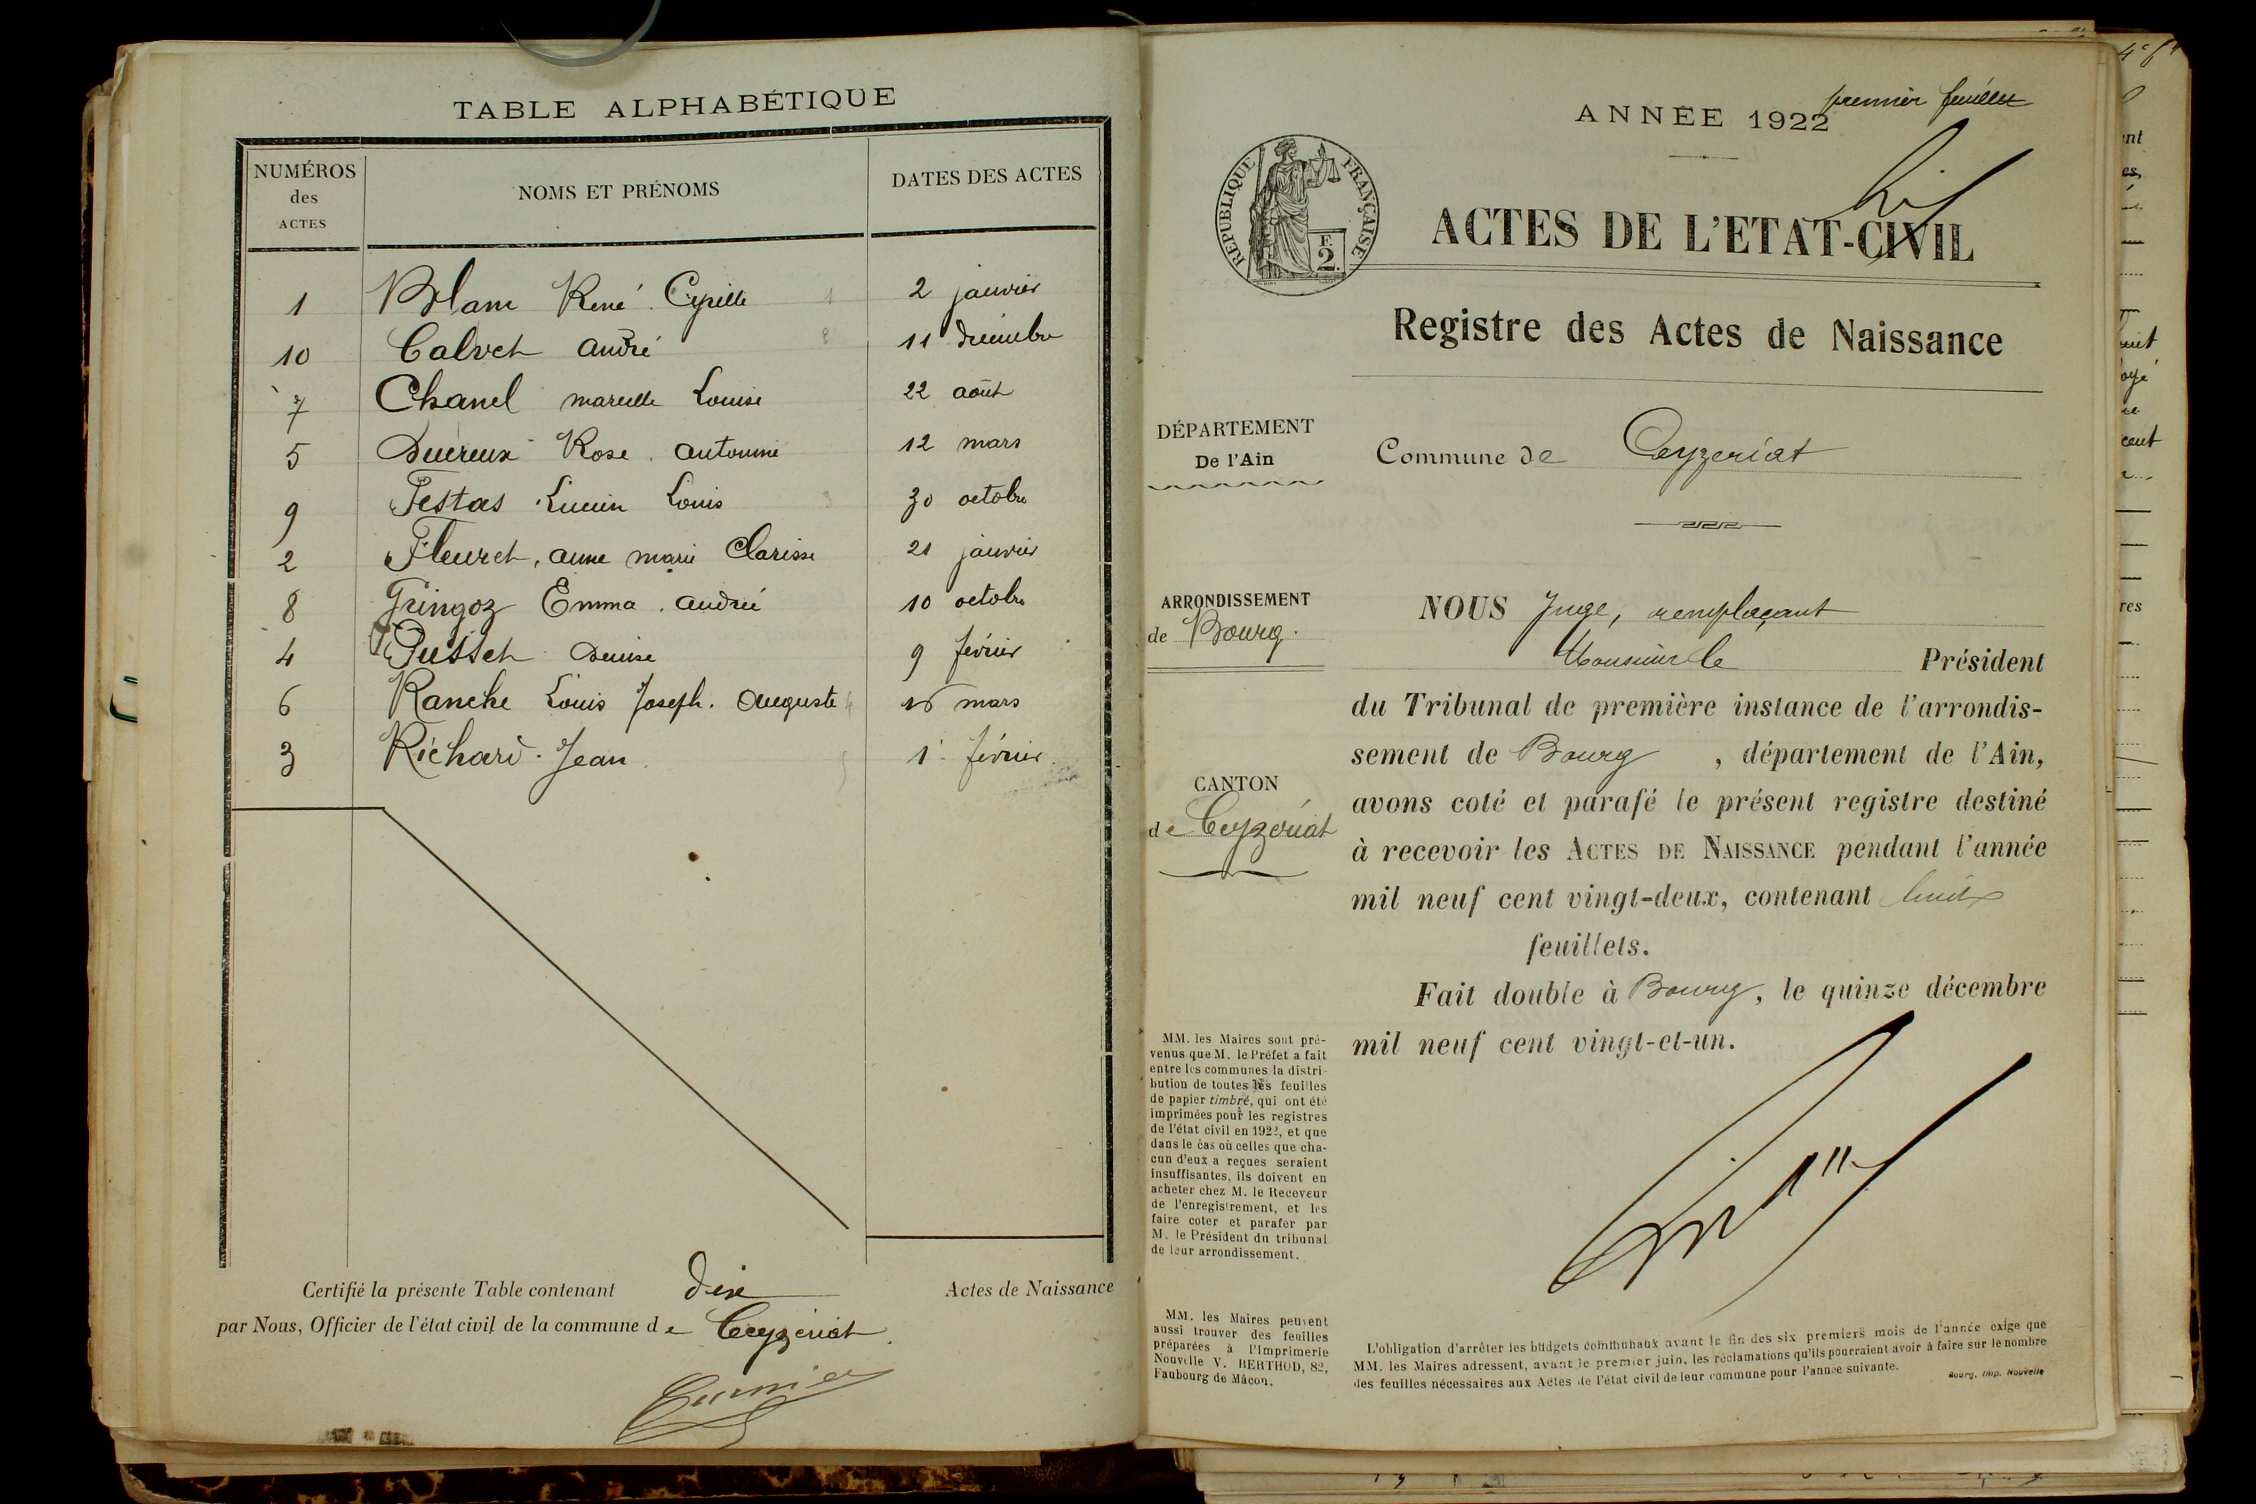 TABLE ALPHABÉTIQUE
NUMÉROS des ACTES
NOMS ET PRÉNOMS
DATES DES ACTES
1 Blanc René Cyrille 2 janvier
10 Calvet André 11 décembre
7 Chanel Marcelle Louise 22 août
5 Ducreux Rose Antoinine 12 mars
9 Festas Lucien Louis 30 octobre
2 Fleuret, Anne Marie Clarisse 21 janvier
8 Gringoz Emma Andrée 10 octobre
4 Pusset Denise 9 février
6 Ranche Louis Joseph. Auguste 16 mars
3 Richard Jean 1 février
Certifié la présente Table contenant dix Actes de Naissance
par Nous, Officier de l'état civil de la commune de Ceyzeriat
premier feuillet
ANNÉE 1922
RÉPUBLIQUE FRANÇAISE
F.
2.
ACTES DE L'ETAT-CIVIL
Registre des Actes de Naissance
DÉPARTEMENT
De l'Ain
Commune de Ceyzeriat
ARRONDISSEMENT
de Bourg.
CANTON
de Ceyzeriat
NOUS Juge, remplaçant
Monsieur le Président
du Tribunal de première instance de l'arrondis-
sement de Bourg, département de l'Ain,
avons coté et parafé le présent registre destiné
à recevoir les ACTES DE NAISSANCE pendant l'année
mil neuf cent vingt-deux, contenant huit
feuillets.
Fait double à Bourg, le quinze décembre
mil neuf cent vingt-et-un.
MM. les Maires sont pré-
venus que M. le Préfet a fait
entre les communes la distri-
bution de toutes les feuilles
de papier timbré, qui ont été
imprimées pour les registres
de l'état civil en 1922, et que
dans le cas où celles que cha-
cun d'eux a reçues seraient
insuffisantes, ils doivent en
acheter chez M. le Receveur
de l'enregistrement, et les
faire coter et parafer par
M. le Président du tribunal
de leur arrondissement.
MM. les Maires peuvent
aussi trouver des feuilles
préparées à l'Imprimerie
Nouvelle V. BERTHOD, 82,
Faubourg de Mâcon.
L'obligation d'arrêter les budgets communaux avant la fin des six premiers mois de l'année exige que
MM. les Maires adressent, avant le premier juin, les réclamations qu'ils pourraient avoir à faire sur le nombre
des feuilles nécessaires aux Actes de l'état civil de leur commune pour l'année suivante.
Bourg, Imp. Nouvelle